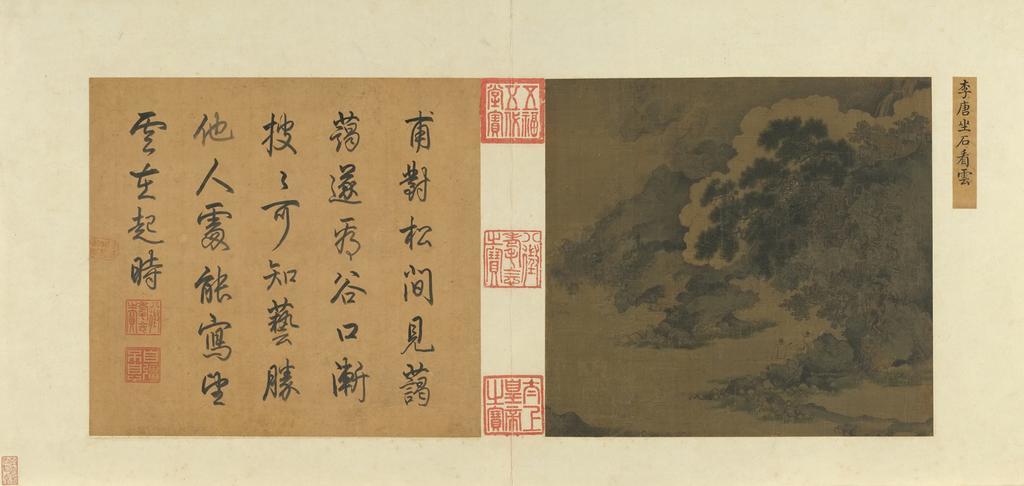 李唐坐石看雲
五福五代堂寶
八徵耄念之寶
太上皇帝之寶
甫對松間見藹
藹遂看谷口漸
披〻可知藝勝
他人處能寫望
雲在起時
八徵耄念之寶
自彊不息